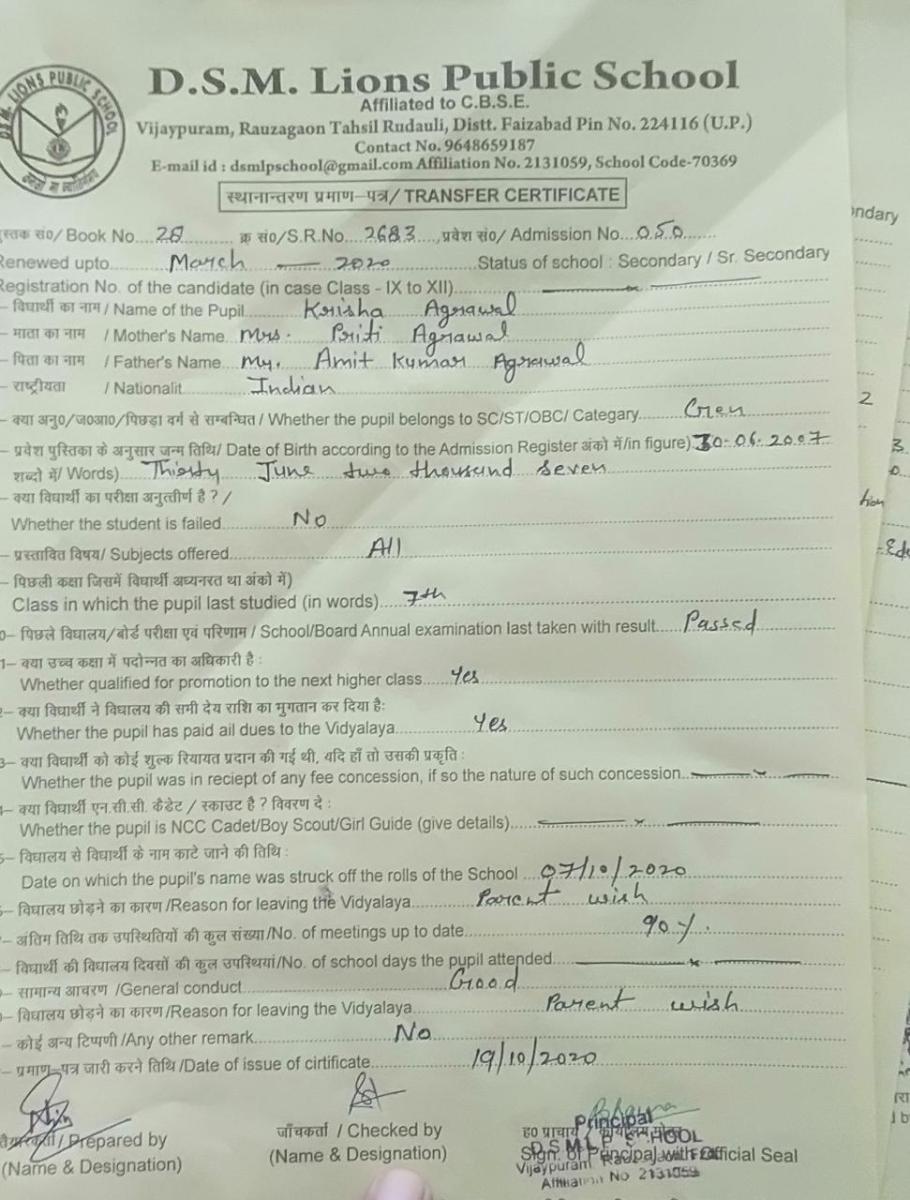 D.S.M. LIONS PUBLIC SCHOOL
D.S.M. Lions Public School
Affiliated to C.B.S.E.
Vijaypuram, Rauzagaon Tahsil Rudauli, Distt. Faizabad Pin No. 224116 (U.P.)
Contact No. 9648659187
E-mail id : dsmlpschool@gmail.com Affiliation No. 2131059, School Code-70369
स्थानान्तरण प्रमाण-पत्र/ TRANSFER CERTIFICATE
स्तक सं०/ Book No. 28 क्र सं०/S.R.No. 2683 प्रवेश सं०/ Admission No. 050
Renewed upto March — 2020 Status of school : Secondary / Sr. Secondary
Registration No. of the candidate (in case Class - IX to XII)
विद्यार्थी का नाम / Name of the Pupil Krisha Agrawal
माता का नाम / Mother's Name Mrs. Priti Agrawal
पिता का नाम / Father's Name My. Amit Kumar Agrawal
राष्ट्रीयता / Nationalit Indian
क्या अनु०/ज०आ०/पिछड़ा वर्ग से सम्बन्धित / Whether the pupil belongs to SC/ST/OBC/ Categary Gen
प्रवेश पुस्तिका के अनुसार जन्म तिथि/ Date of Birth according to the Admission Register अंको में/in figure) 30-06-2007
शब्दो में/ Words) Thirty June two thousand seven
क्या विद्यार्थी का परीक्षा अनुत्तीर्ण है ? /
Whether the student is failed No
प्रस्तावित विषय/ Subjects offered All
पिछली कक्षा जिसमें विद्यार्थी अध्यनरत था अंको में)
Class in which the pupil last studied (in words) 7th
0- पिछले विद्यालय/बोर्ड परीक्षा एवं परिणाम / School/Board Annual examination last taken with result Passed
1- क्या उच्च कक्षा में पदोन्नत का अधिकारी है :
Whether qualified for promotion to the next higher class Yes
क्या विद्यार्थी ने विद्यालय की सभी देय राशि का भुगतान कर दिया है:
Whether the pupil has paid ail dues to the Vidyalaya Yes
3- क्या विद्यार्थी को कोई शुल्क रियायत प्रदान की गई थी, यदि हाँ तो उसकी प्रकृति :
Whether the pupil was in reciept of any fee concession, if so the nature of such concession
क्या विद्यार्थी एन.सी.सी. कैडेट / स्काउट है ? विवरण दे :
Whether the pupil is NCC Cadet/Boy Scout/Girl Guide (give details)
विद्यालय से विद्यार्थी के नाम काटे जाने की तिथि :
Date on which the pupil's name was struck off the rolls of the School 07/10/2020
विद्यालय छोड़ने का कारण /Reason for leaving the Vidyalaya Parent wish
अंतिम तिथि तक उपस्थितियों की कुल संख्या/No. of meetings up to date 90%.
विद्यार्थी की विद्यालय दिवसों की कुल उपस्थियां/No. of school days the pupil attended
सामान्य आचरण /General conduct Good
विद्यालय छोड़ने का कारण /Reason for leaving the Vidyalaya Parent wish
कोई अन्य टिप्पणी /Any other remark No
प्रमाण-पत्र जारी करने तिथि /Date of issue of cirtificate 19/10/2020
Prepared by
(Name & Designation)
जाँचकर्ता / Checked by
(Name & Designation)
Principal
ह० प्राचार्य
Sign. of Principal with Official Seal
Vijaypuram
Affiliation No 2131059
ndary
2
3.
tion